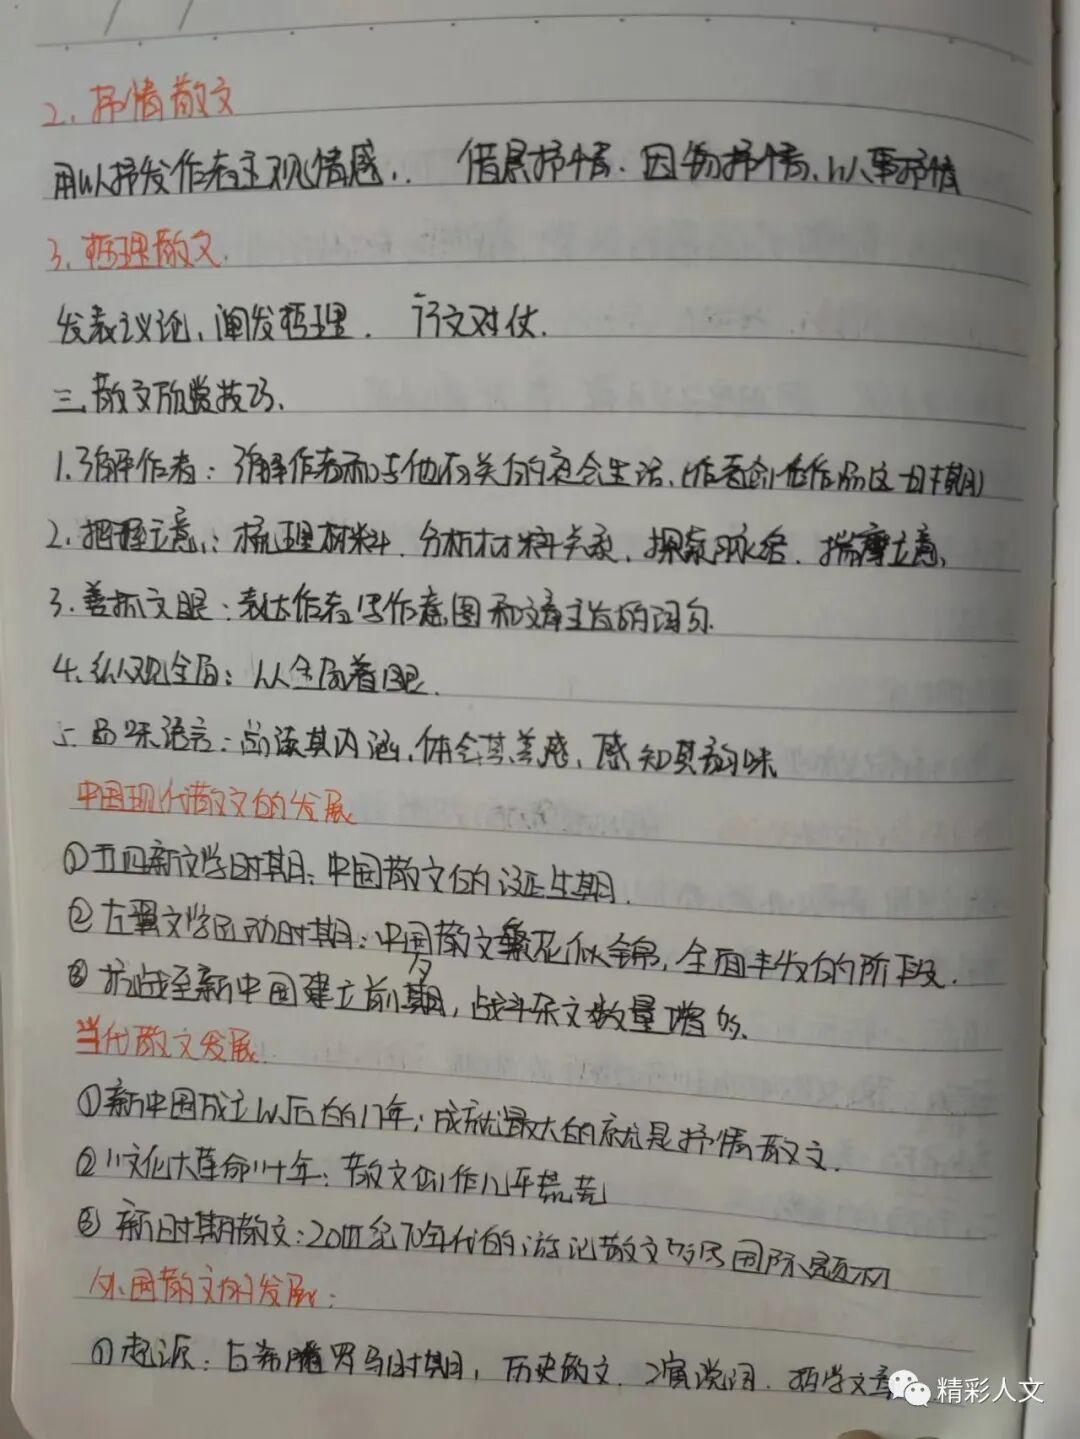 2、抒情散文
用以抒发作者主观情感,. 借景抒情、因物抒情、以事抒情
3、哲理散文.
发表议论、阐发哲理. 行文对仗.
三 散文欣赏技巧、
1.了解作者：了解作者和与他有关的社会生活、(作者创作作品这一时期)
2、把握立意：梳理材料、分析材料关系、探索脉络、揣摩立意、
3、善抓文眼：表达作者写作意图和文章主旨的词句.
4、纵观全局：从全局着眼.
5、品味语言：品读其内涵、体会其美感、感知其韵味
中国现代散文的发展
①五四新文学时期：中国散文的诞生期.
②左翼文学运动时期：中国散文繁花似锦，全面丰收的阶段.
③抗战至新中国建立前夕期，战斗杂文数量增多、
当代散文发展.
①新中国成立以后的17年；成就最大的就是抒情散文.
②"文化大革命"十年：散文创作几乎荒芜
③新时期散文：20世纪70年代的游记散文 国际题材
外国散文的发展：
①起源：古希腊罗马时期，历史散文、演说词、哲学文章
精彩人文